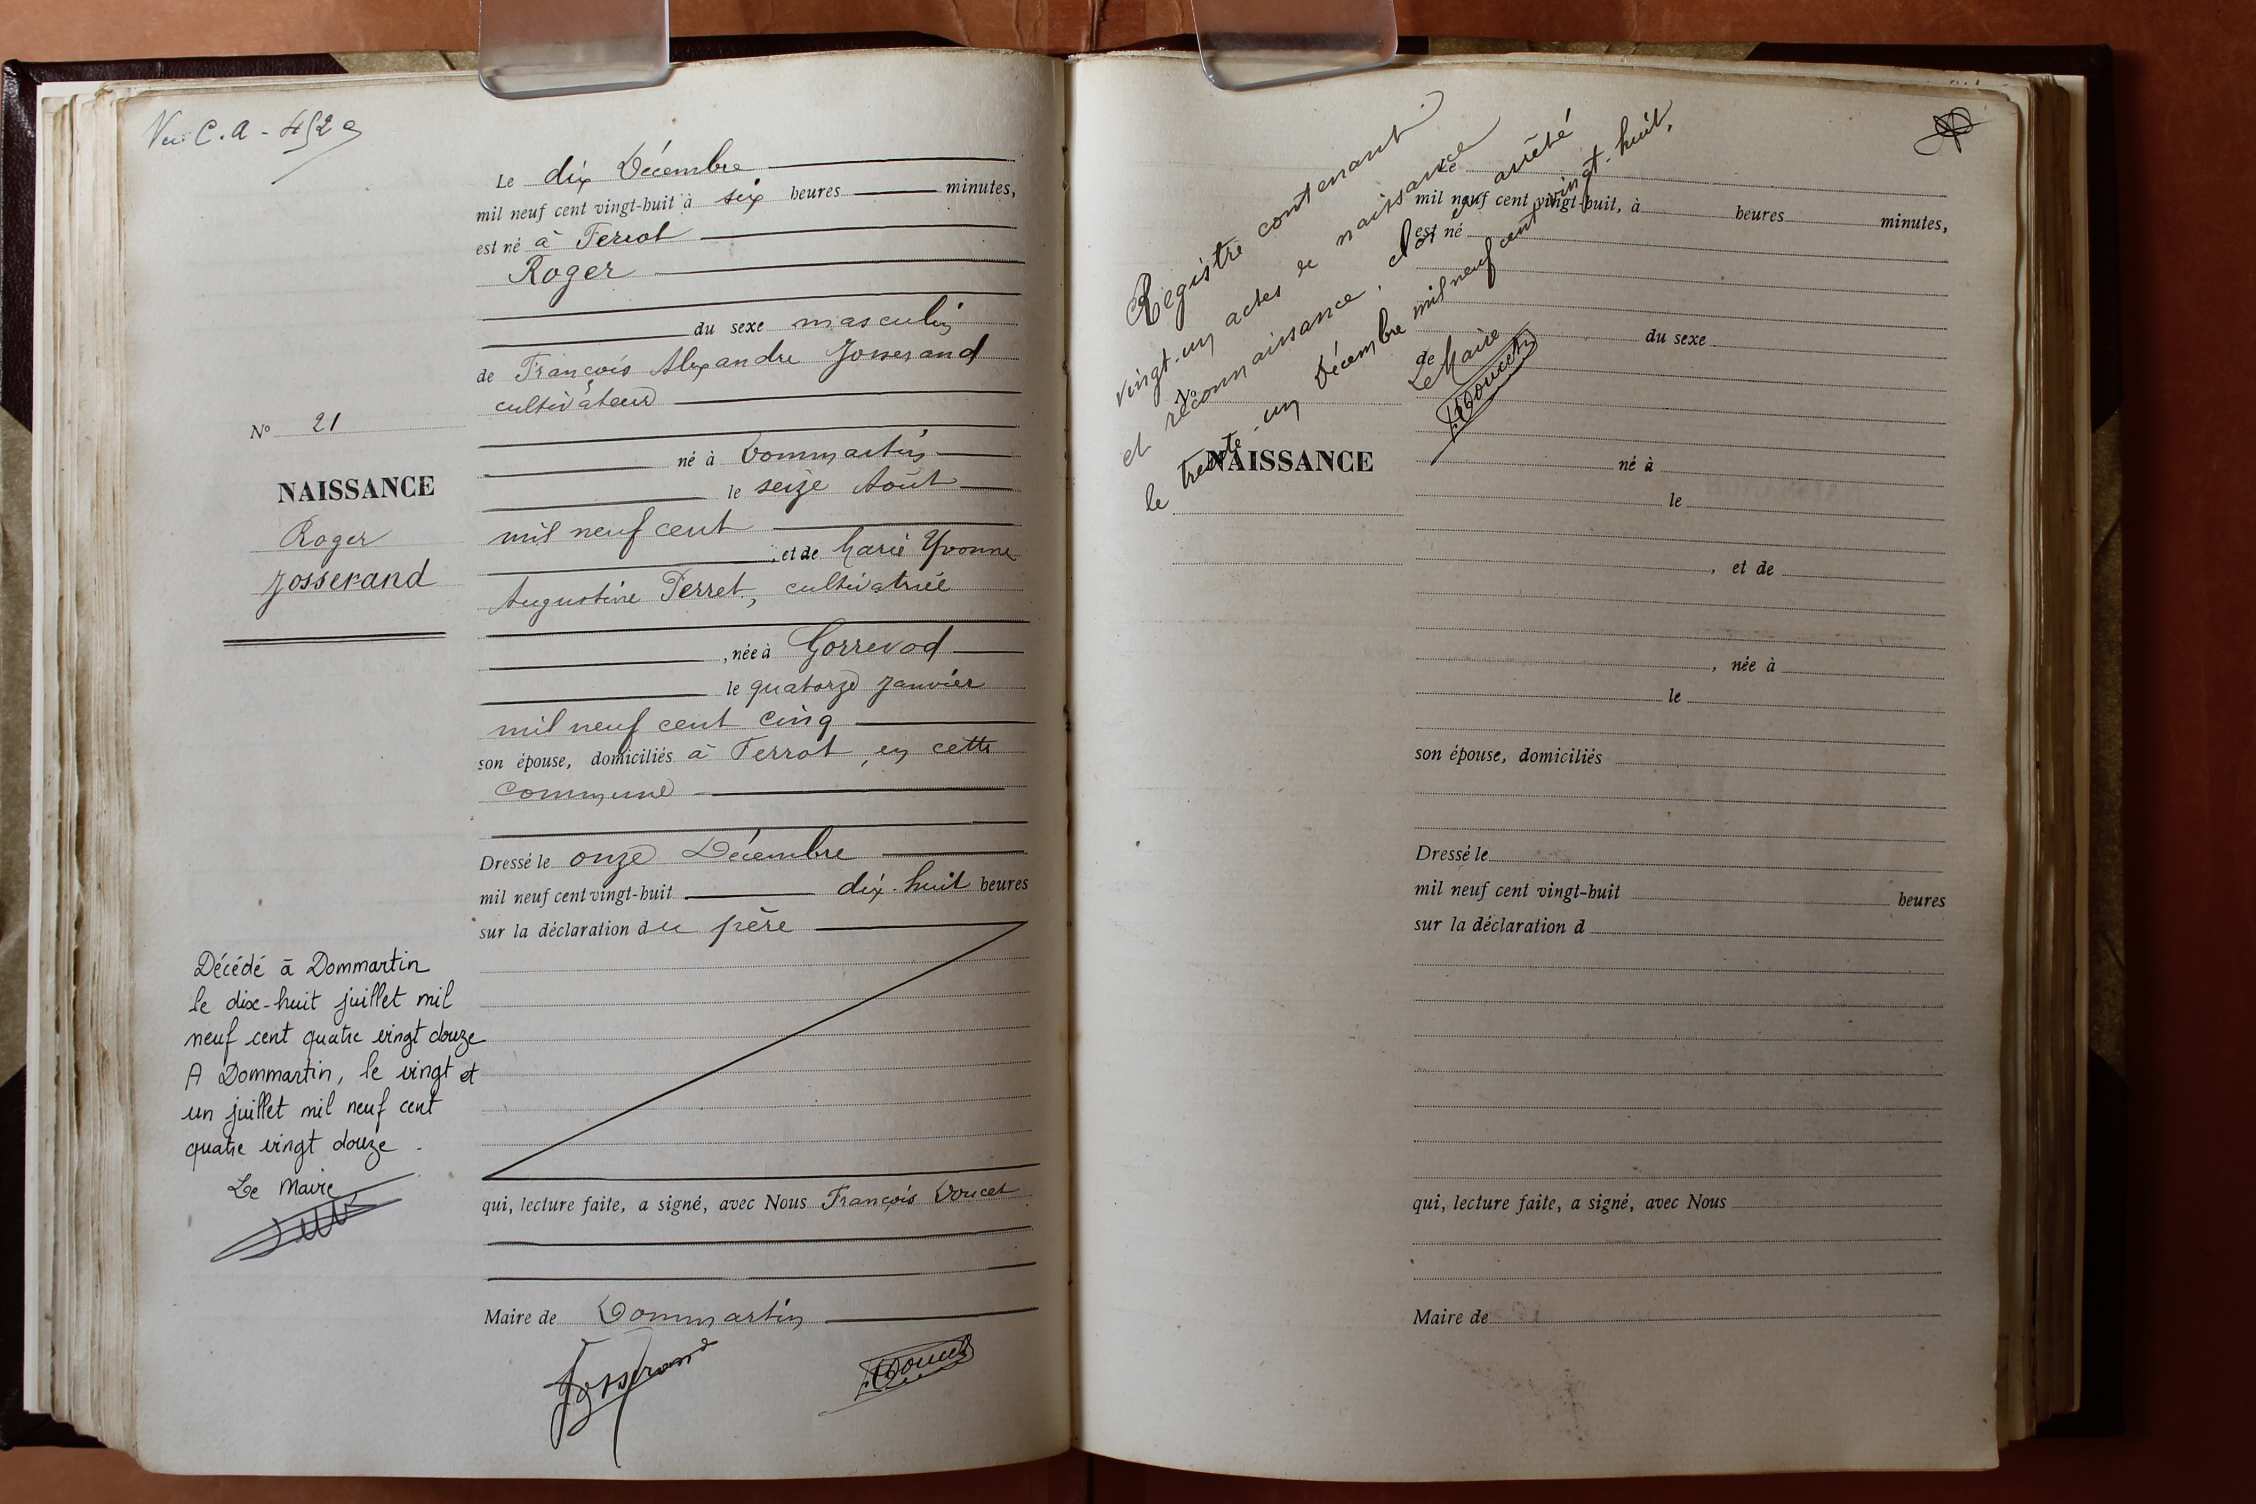 Vu C.A - 452 a
Le dix Décembre
mil neuf cent vingt-huit à six heures minutes,
est né à Terrot
Roger
du sexe masculin
de François Alexandre Josserand
cultivateur
N° 21
né à Dommartin
le seize Août
NAISSANCE
mil neuf cent
Roger
, et de Marie Yvonne
Josserand
Augustine Perret, cultivatrice
, née à Gorrevod
le quatorze Janvier
mil neuf cent cinq
son épouse, domiciliés à Terrot, en cette
commune
Dressé le onze Décembre
mil neuf cent vingt-huit dix-huit heures
sur la déclaration du père
Décédé à Dommartin
le dix-huit juillet mil
neuf cent quatre vingt douze
A Dommartin, le vingt et
un juillet mil neuf cent
quatre vingt douze.
Le Maire
qui, lecture faite, a signé, avec Nous François Doucet
Maire de Dommartin
Josserand
F. Doucet
Registre contenant
vingt-un actes de naissance
et reconnaissance, clos et arrêté
le trente-un Décembre mil neuf cent vingt-huit,
Le Maire
F. Doucet
Le
mil neuf cent vingt-huit, à heures minutes,
est né
du sexe
de
N°
NAISSANCE
né à
le
, et de
, née à
le
son épouse, domiciliés
Dressé le
mil neuf cent vingt-huit heures
sur la déclaration d
qui, lecture faite, a signé, avec Nous
Maire de